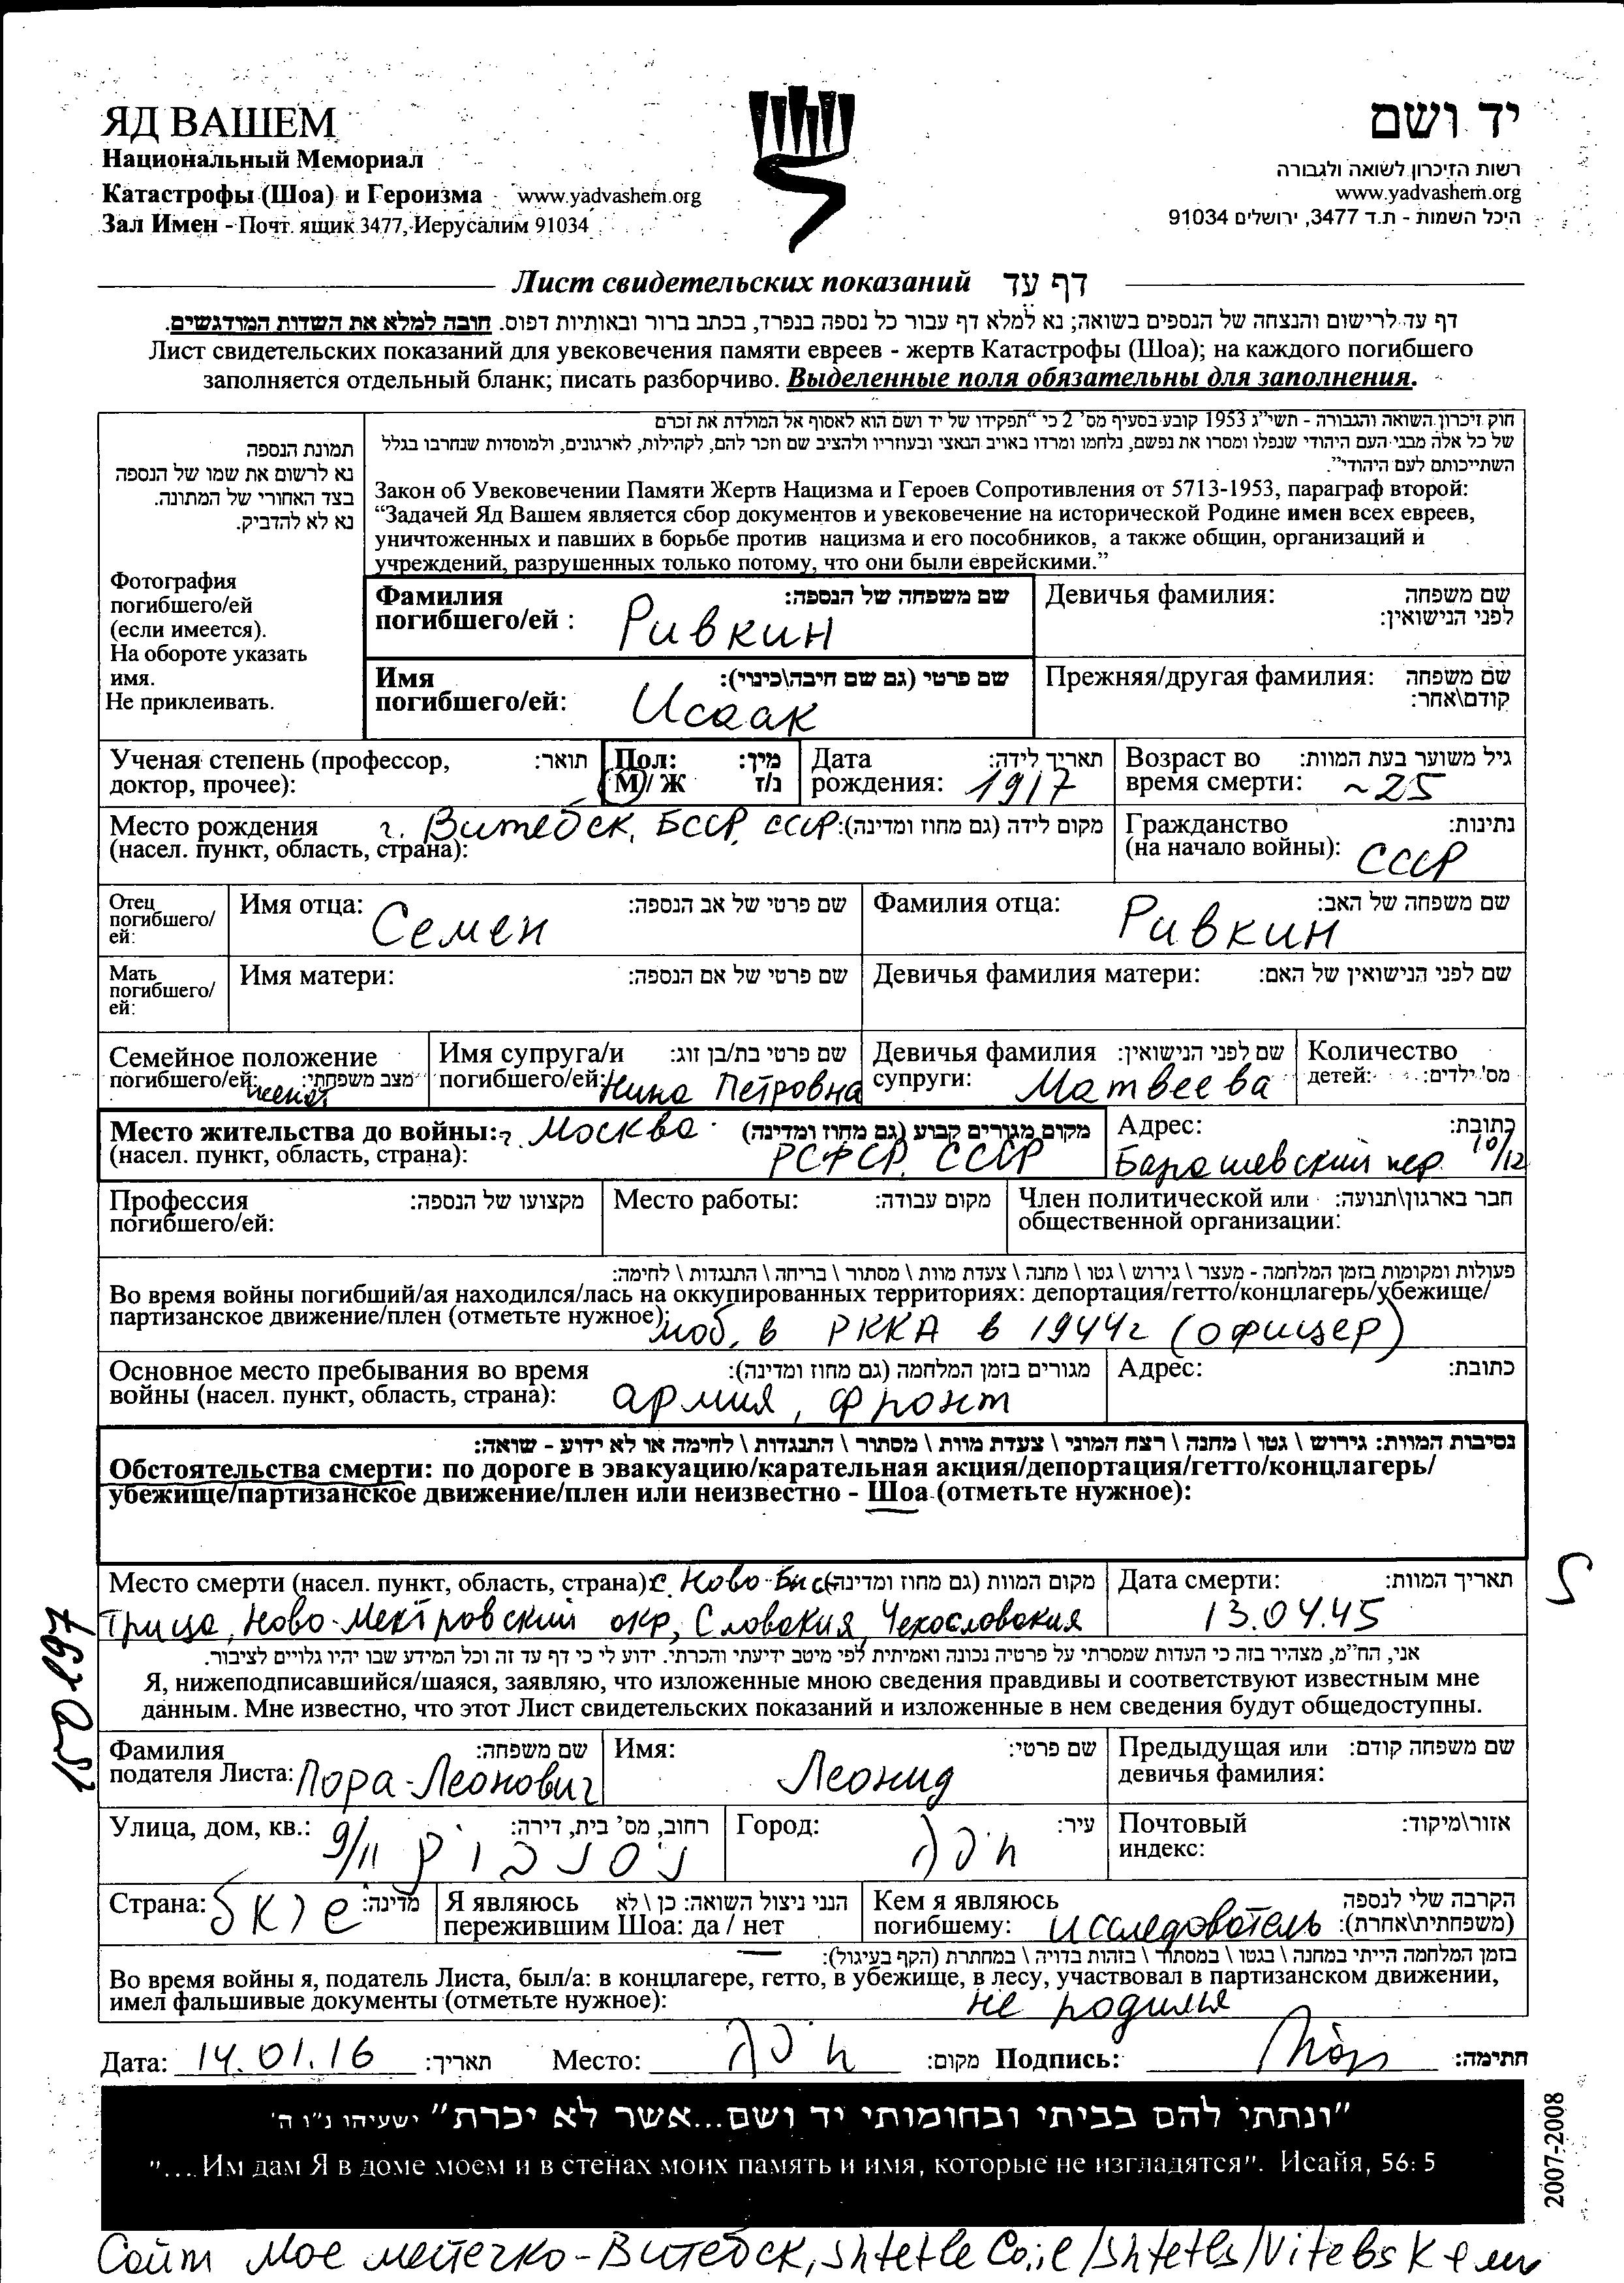 ЯД ВАШЕМ
Национальный Мемориал
Катастрофы (Шоа) и Героизма www.yadvashem.org
Зал Имен - Почт. ящик 3477, Иерусалим 91034
יד ושם
רשות הזיכרון לשואה ולגבורה
www.yadvashem.org
היכל השמות - ת.ד 3477, ירושלים 91034
Лист свидетельских показаний דף עד
דף עד לרישום והנצחה של הנספים בשואה; נא למלא דף עבור כל נספה בנפרד, בכתב ברור ובאותיות דפוס. חובה למלא את השדות המודגשים.
Лист свидетельских показаний для увековечения памяти евреев - жертв Катастрофы (Шоа); на каждого погибшего
заполняется отдельный бланк; писать разборчиво. Выделенные поля обязательны для заполнения.
תמונת הנספה
נא לרשום את שמו של הנספה
בצד האחורי של המתונה.
נא לא להדביק.
Фотография
погибшего/ей
(если имеется).
На обороте указать
имя.
Не приклеивать.
חוק זיכרון השואה והגבורה - תשי"ג 1953 קובע בסעיף מס' 2 כי "תפקידו של יד ושם הוא לאסוף אל המולדת את זכרם
של כל אלה מבני העם היהודי שנפלו ומסרו את נפשם, נלחמו ומרדו באויב הנאצי ובעוזריו ולהציב שם וזכר להם, לקהילות, לארגונים, ולמוסדות שנחרבו בגלל
השתייכותם לעם היהודי".
Закон об Увековечении Памяти Жертв Нацизма и Героев Сопротивления от 5713-1953, параграф второй:
“Задачей Яд Вашем является сбор документов и увековечение на исторической Родине имен всех евреев,
уничтоженных и павших в борьбе против нацизма и его пособников, а также общин, организаций и
учреждений, разрушенных только потому, что они были еврейскими.”
Фамилия שם משפחה של הנספה:
погибшего/ей : Ривкин
Девичья фамилия: שם משפחה
לפני הנישואין:
Имя שם פרטי (גם שם חיבה\כינוי):
погибшего/ей: Исаак
Прежняя/другая фамилия: שם משפחה
קודם\אחר:
Ученая степень (профессор, תואר:
доктор, прочее):
Пол: מין:
М/ Ж ז/נ
Дата תאריך לידה:
рождения: 1917
Возраст во גיל משוער בעת המוות:
время смерти: ~25
Место рождения г. Витебск, БССР, СССР מקום לידה (גם מחוז ומדינה):
(насел. пункт, область, страна):
Гражданство נתינות:
(на начало войны): СССР
Отец
погибшего/
ей:
Имя отца: Семен שם פרטי של אב הנספה:
Фамилия отца: Ривкин שם משפחה של האב:
Мать
погибшего/
ей:
Имя матери: שם פרטי של אם הנספה:
Девичья фамилия матери: שם לפני הנישואין של האם:
Семейное положение
погибшего/ей: женат מצב משפחתי:
Имя супруга/и שם פרטי בת/בן זוג:
погибшего/ей: Нина Петровна
Девичья фамилия שם לפני הנישואין:
супруги: Матвеева
Количество
детей: מס' ילדים:
Место жительства до войны: г. Москва מקום מגורים קבוע (גם מחוז ומדינה)
(насел. пункт, область, страна): РСФСР, СССР
Адрес: כתובת:
Барашевский пер 10/12
Профессия מקצועו של הנספה:
погибшего/ей:
Место работы: מקום עבודה:
Член политической или חבר בארגון\תנועה:
общественной организации:
פעולות ומקומות בזמן המלחמה - מעצר \ גירוש \ גטו \ מחנה \ צעדת מוות \ מסתור \ בריחה \ התנגדות \ לחימה:
Во время войны погибший/ая находился/лась на оккупированных территориях: депортация/гетто/концлагерь/убежище/
партизанское движение/плен (отметьте нужное): моб. в РККА в 1944г (офицер)
Основное место пребывания во время מגורים בזמן המלחמה (גם מחוז ומדינה):
войны (насел. пункт, область, страна): армия, фронт
Адрес: כתובת:
נסיבות המוות: גירוש \ גטו \ מחנה \ רצח המוני \ צעדת מוות \ מסתור \ התנגדות \ לחימה או לא ידוע - שואה:
Обстоятельства смерти: по дороге в эвакуацию/карательная акция/депортация/гетто/концлагерь/
убежище/партизанское движение/плен или неизвестно - Шоа (отметьте нужное):
Место смерти (насел. пункт, область, страна): с. Ново-Бис- מקום המוות (גם מחוז ומדינה)
трица, Ново-Местровский окр, Словакия, Чехословакия
Дата смерти: תאריך המוות:
13.04.45
S
150297
אני, הח"מ, מצהיר בזה כי העדות שמסרתי על פרטיה נכונה ואמיתית לפי מיטב ידיעתי והכרתי. ידוע לי כי דף עד זה וכל המידע שבו יהיו גלויים לציבור.
Я, нижеподписавшийся/шаяся, заявляю, что изложенные мною сведения правдивы и соответствуют известным мне
данным. Мне известно, что этот Лист свидетельских показаний и изложенные в нем сведения будут общедоступны.
Фамилия שם משפחה:
подателя Листа: Пора-Леонович
Имя: שם פרטי:
Леонид
Предыдущая или שם משפחה קודם:
девичья фамилия:
Улица, дом, кв.: רחוב, מס' בית, דירה:
9/11
Город: עיר:
חיפה
Почтовый אזור\מיקוד:
индекс:
Страна: ישראל מדינה:
Я являюсь הנני ניצול השואה: כן \ לא
пережившим Шоа: да / нет
Кем я являюсь הקרבה שלי לנספה
погибшему: исследователь (משפחתית\אחרת):
בזמן המלחמה הייתי במחנה \ בגטו \ במסתור \ בזהות בדויה \ במחתרת (הקף בעיגול):
Во время войны я, податель Листа, был/а: в концлагере, гетто, в убежище, в лесу, участвовал в партизанском движении,
имел фальшивые документы (отметьте нужное): не родился
Дата: 14.01.16 תאריך: Место: חיפה מקום: Подпись: חתימה:
"ונתתי להם בביתי ובחומותי יד ושם...אשר לא יכרת" ישעיהו נ"ו ה'
"....Им дам Я в доме моем и в стенах моих память и имя, которые не изгладятся". Исайя, 56: 5
2007-2008
Сайт Мое местечко-Витебск, shtetle Co.il/Shtetls/Vitebsk